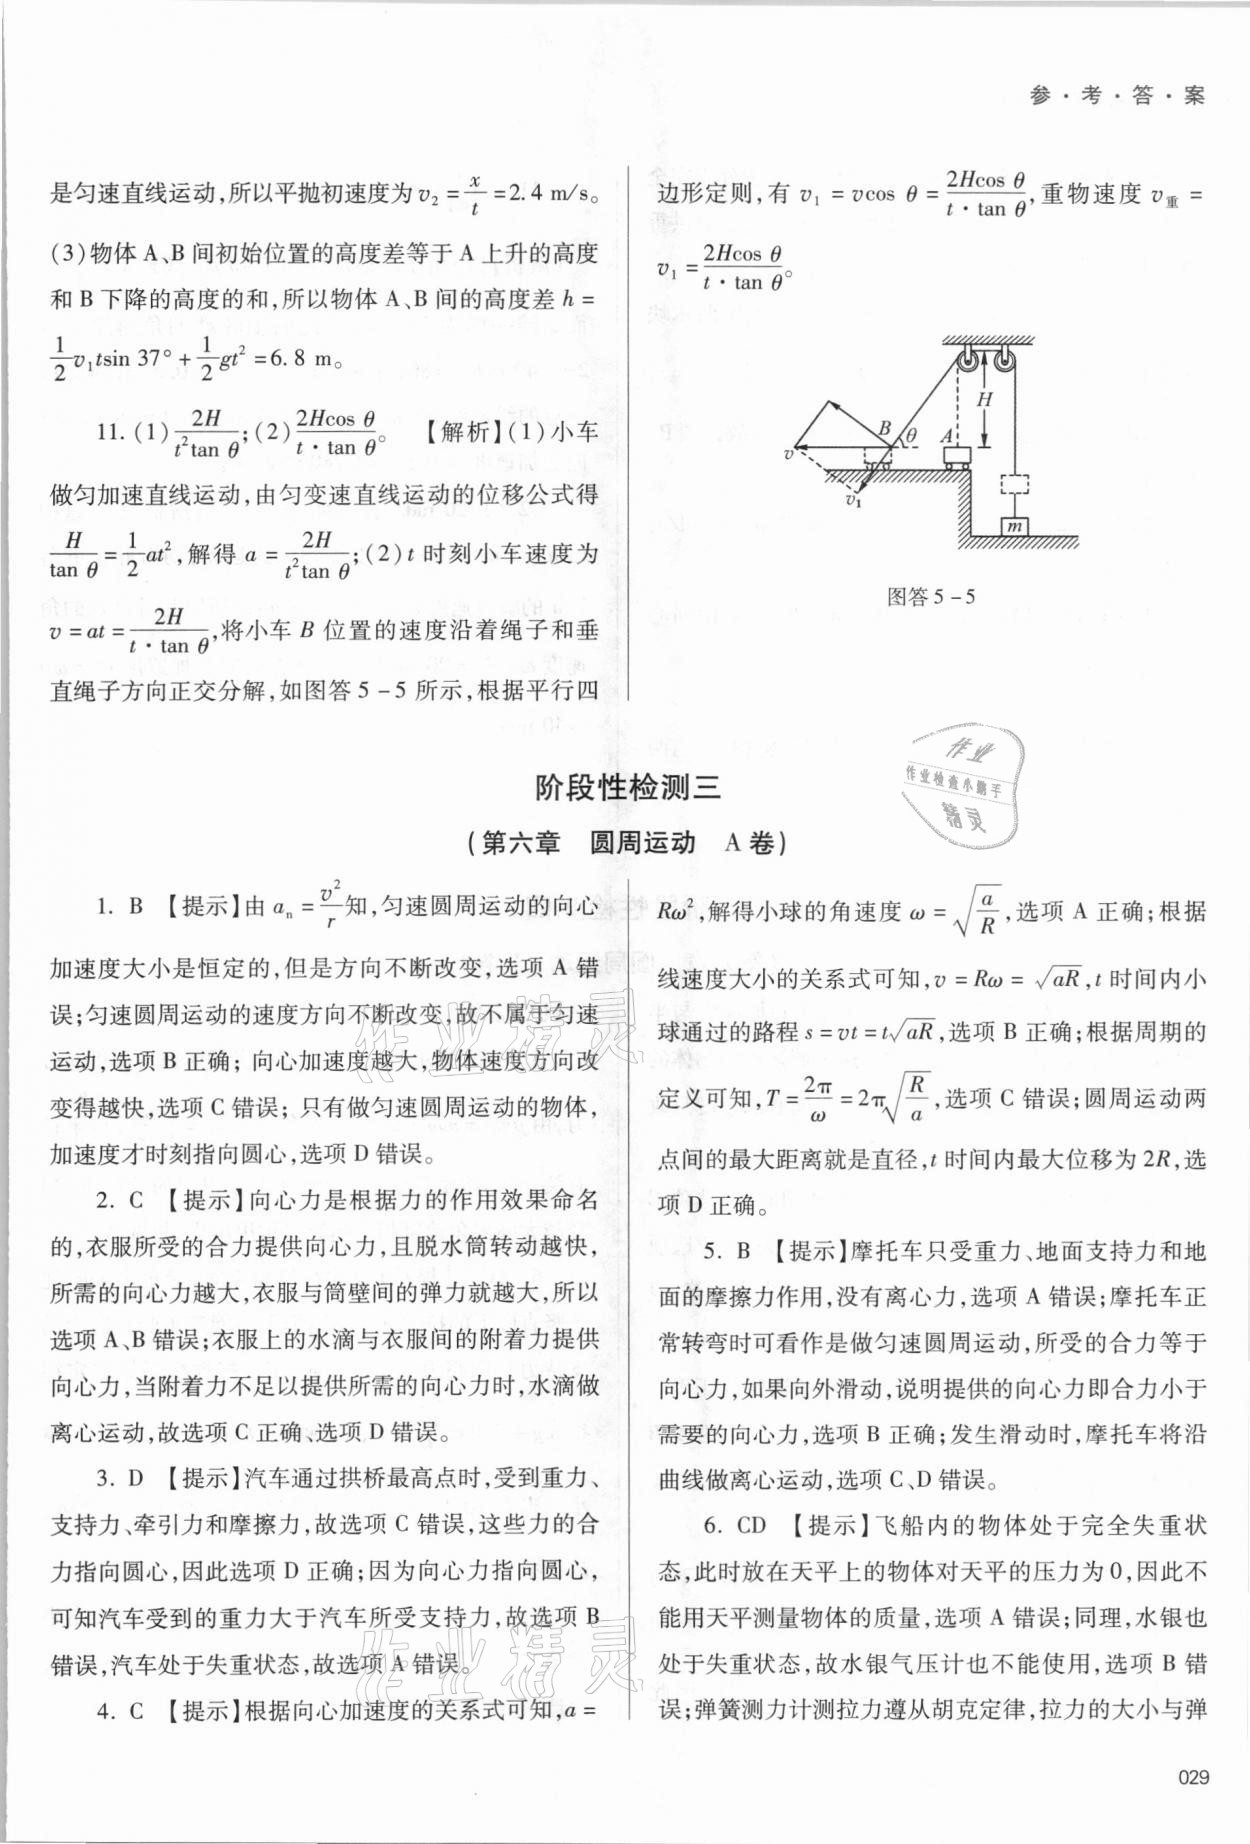 参·考·答·案
是匀速直线运动,所以平抛初速度为 v₂ = x/t = 2.4 m/s。
(3)物体 A、B 间初始位置的高度差等于 A 上升的高度
和 B 下降的高度的和,所以物体 A、B 间的高度差 h =
1/2 v₁tsin 37° + 1/2 gt² = 6.8 m。
11. (1) 2H/(t²tan θ);(2) 2Hcos θ/(t·tan θ)。 【解析】(1)小车
做匀加速直线运动,由匀变速直线运动的位移公式得
H/tan θ = 1/2 at²,解得 a = 2H/(t²tan θ);(2) t 时刻小车速度为
v = at = 2H/(t·tan θ),将小车 B 位置的速度沿着绳子和垂
直绳子方向正交分解,如图答 5-5 所示,根据平行四
边形定则,有 v₁ = vcos θ = 2Hcos θ/(t·tan θ),重物速度 v重 =
v₁ = 2Hcos θ/(t·tan θ)。
H
B
θ
A
v
v₁
m
图答 5-5
阶段性检测三
(第六章 圆周运动 A 卷)
1. B 【提示】由 aₙ = v²/r 知,匀速圆周运动的向心
加速度大小是恒定的,但是方向不断改变,选项 A 错
误;匀速圆周运动的速度方向不断改变,故不属于匀速
运动,选项 B 正确; 向心加速度越大,物体速度方向改
变得越快,选项 C 错误; 只有做匀速圆周运动的物体,
加速度才时刻指向圆心,选项 D 错误。
2. C 【提示】向心力是根据力的作用效果命名
的,衣服所受的合力提供向心力,且脱水筒转动越快,
所需的向心力越大,衣服与筒壁间的弹力就越大,所以
选项 A、B 错误;衣服上的水滴与衣服间的附着力提供
向心力,当附着力不足以提供所需的向心力时,水滴做
离心运动,故选项 C 正确、选项 D 错误。
3. D 【提示】汽车通过拱桥最高点时,受到重力、
支持力、牵引力和摩擦力,故选项 C 错误,这些力的合
力指向圆心,因此选项 D 正确;因为向心力指向圆心,
可知汽车受到的重力大于汽车所受支持力,故选项 B
错误,汽车处于失重状态,故选项 A 错误。
4. C 【提示】根据向心加速度的关系式可知,a =
Rω²,解得小球的角速度 ω = √(a/R),选项 A 正确;根据
线速度大小的关系式可知,v = Rω = √(aR),t 时间内小
球通过的路程 s = vt = t√(aR),选项 B 正确;根据周期的
定义可知,T = 2π/ω = 2π√(R/a),选项 C 错误;圆周运动两
点间的最大距离就是直径,t 时间内最大位移为 2R,选
项 D 正确。
5. B 【提示】摩托车只受重力、地面支持力和地
面的摩擦力作用,没有离心力,选项 A 错误;摩托车正
常转弯时可看作是做匀速圆周运动,所受的合力等于
向心力,如果向外滑动,说明提供的向心力即合力小于
需要的向心力,选项 B 正确;发生滑动时,摩托车将沿
曲线做离心运动,选项 C、D 错误。
6. CD 【提示】飞船内的物体处于完全失重状
态,此时放在天平上的物体对天平的压力为 0,因此不
能用天平测量物体的质量,选项 A 错误;同理,水银也
处于失重状态,故水银气压计也不能使用,选项 B 错
误;弹簧测力计测拉力遵从胡克定律,拉力的大小与弹
作业
作业检查小助手
精灵
作业精灵
作业精灵
029